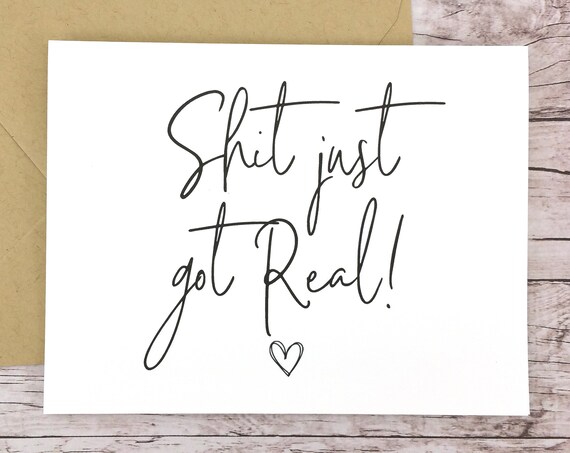 Shit just
got Real!